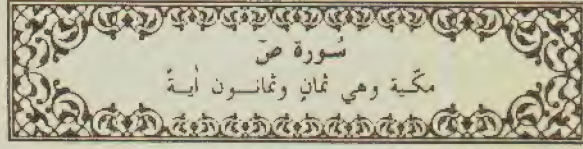 سُورة صٓ
مكّية وهي ثمانٍ وثمانــون أيــةً